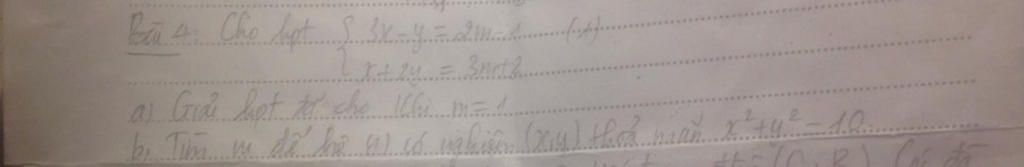 Bài 4: Cho hpt { 3x - y = 2m - 1 (1)
x + 2y = 3m + 2
a) Giải hpt đã cho khi m = 1
b, Tìm m để hệ (1) có nghiệm (x,y) thoả mãn x² + y² = 10.